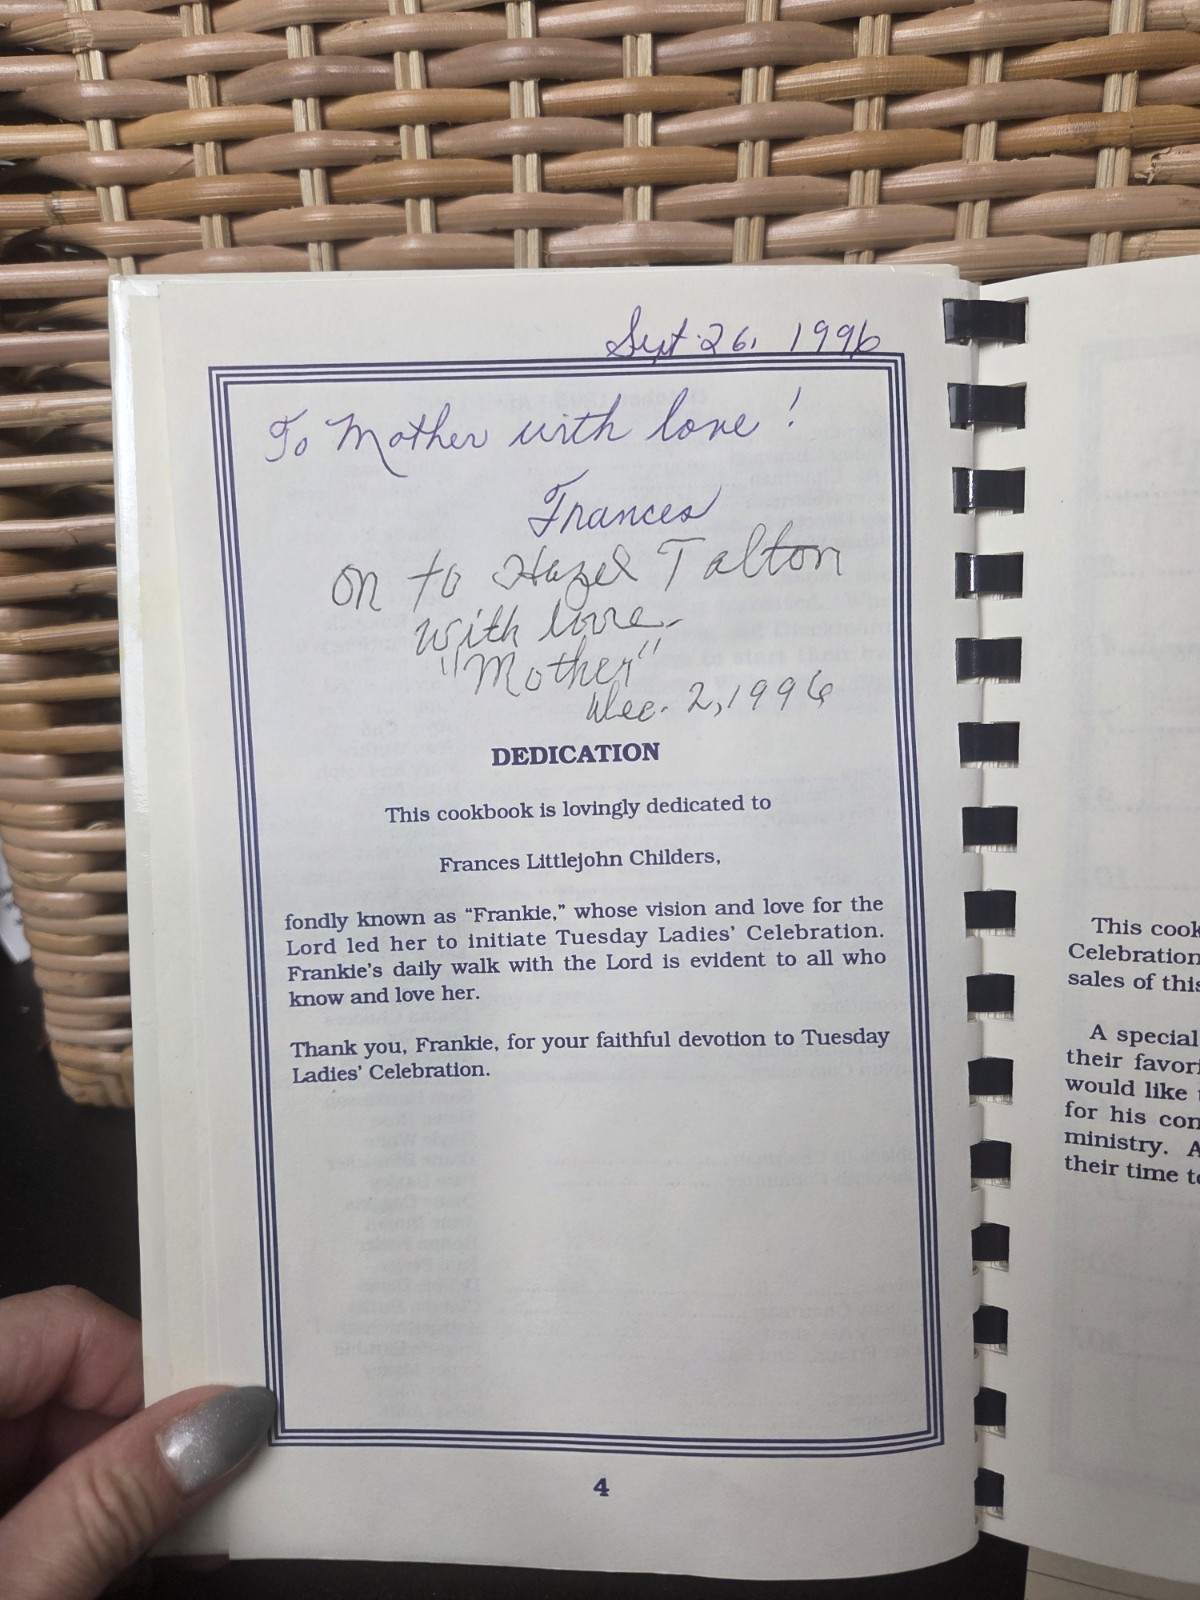 Sept. 26, 1996
To Mother with love!
Frances
on to Hazel Talton
with love.
"Mother"
Dec. 2, 1996
DEDICATION
This cookbook is lovingly dedicated to
Frances Littlejohn Childers,
fondly known as “Frankie,” whose vision and love for the
Lord led her to initiate Tuesday Ladies’ Celebration.
Frankie’s daily walk with the Lord is evident to all who
know and love her.
Thank you, Frankie, for your faithful devotion to Tuesday
Ladies’ Celebration.
4
This cook
Celebration
sales of this
A special
their favor
would like
for his con
ministry. A
their time to